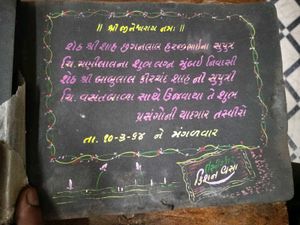 ॥ શ્રી જીનેશ્વરાય નમઃ ॥
શેઠ શ્રી શાહ છગનલાલ હરજીભાઈના સુપુત્ર
ચિ. મણીલાલના શુભ લગ્ન મુંબઈ નિવાસી
શેઠ શ્રી બાબુલાલ શાહ ની સુપુત્રી
ચિ. વસનબાળા સાથે ઉજવાયા તે શુભ
પ્રસંગોની યાદગાર તસ્વીરો
તા. ૧૦-૩-૬૪ ને મંગળવાર